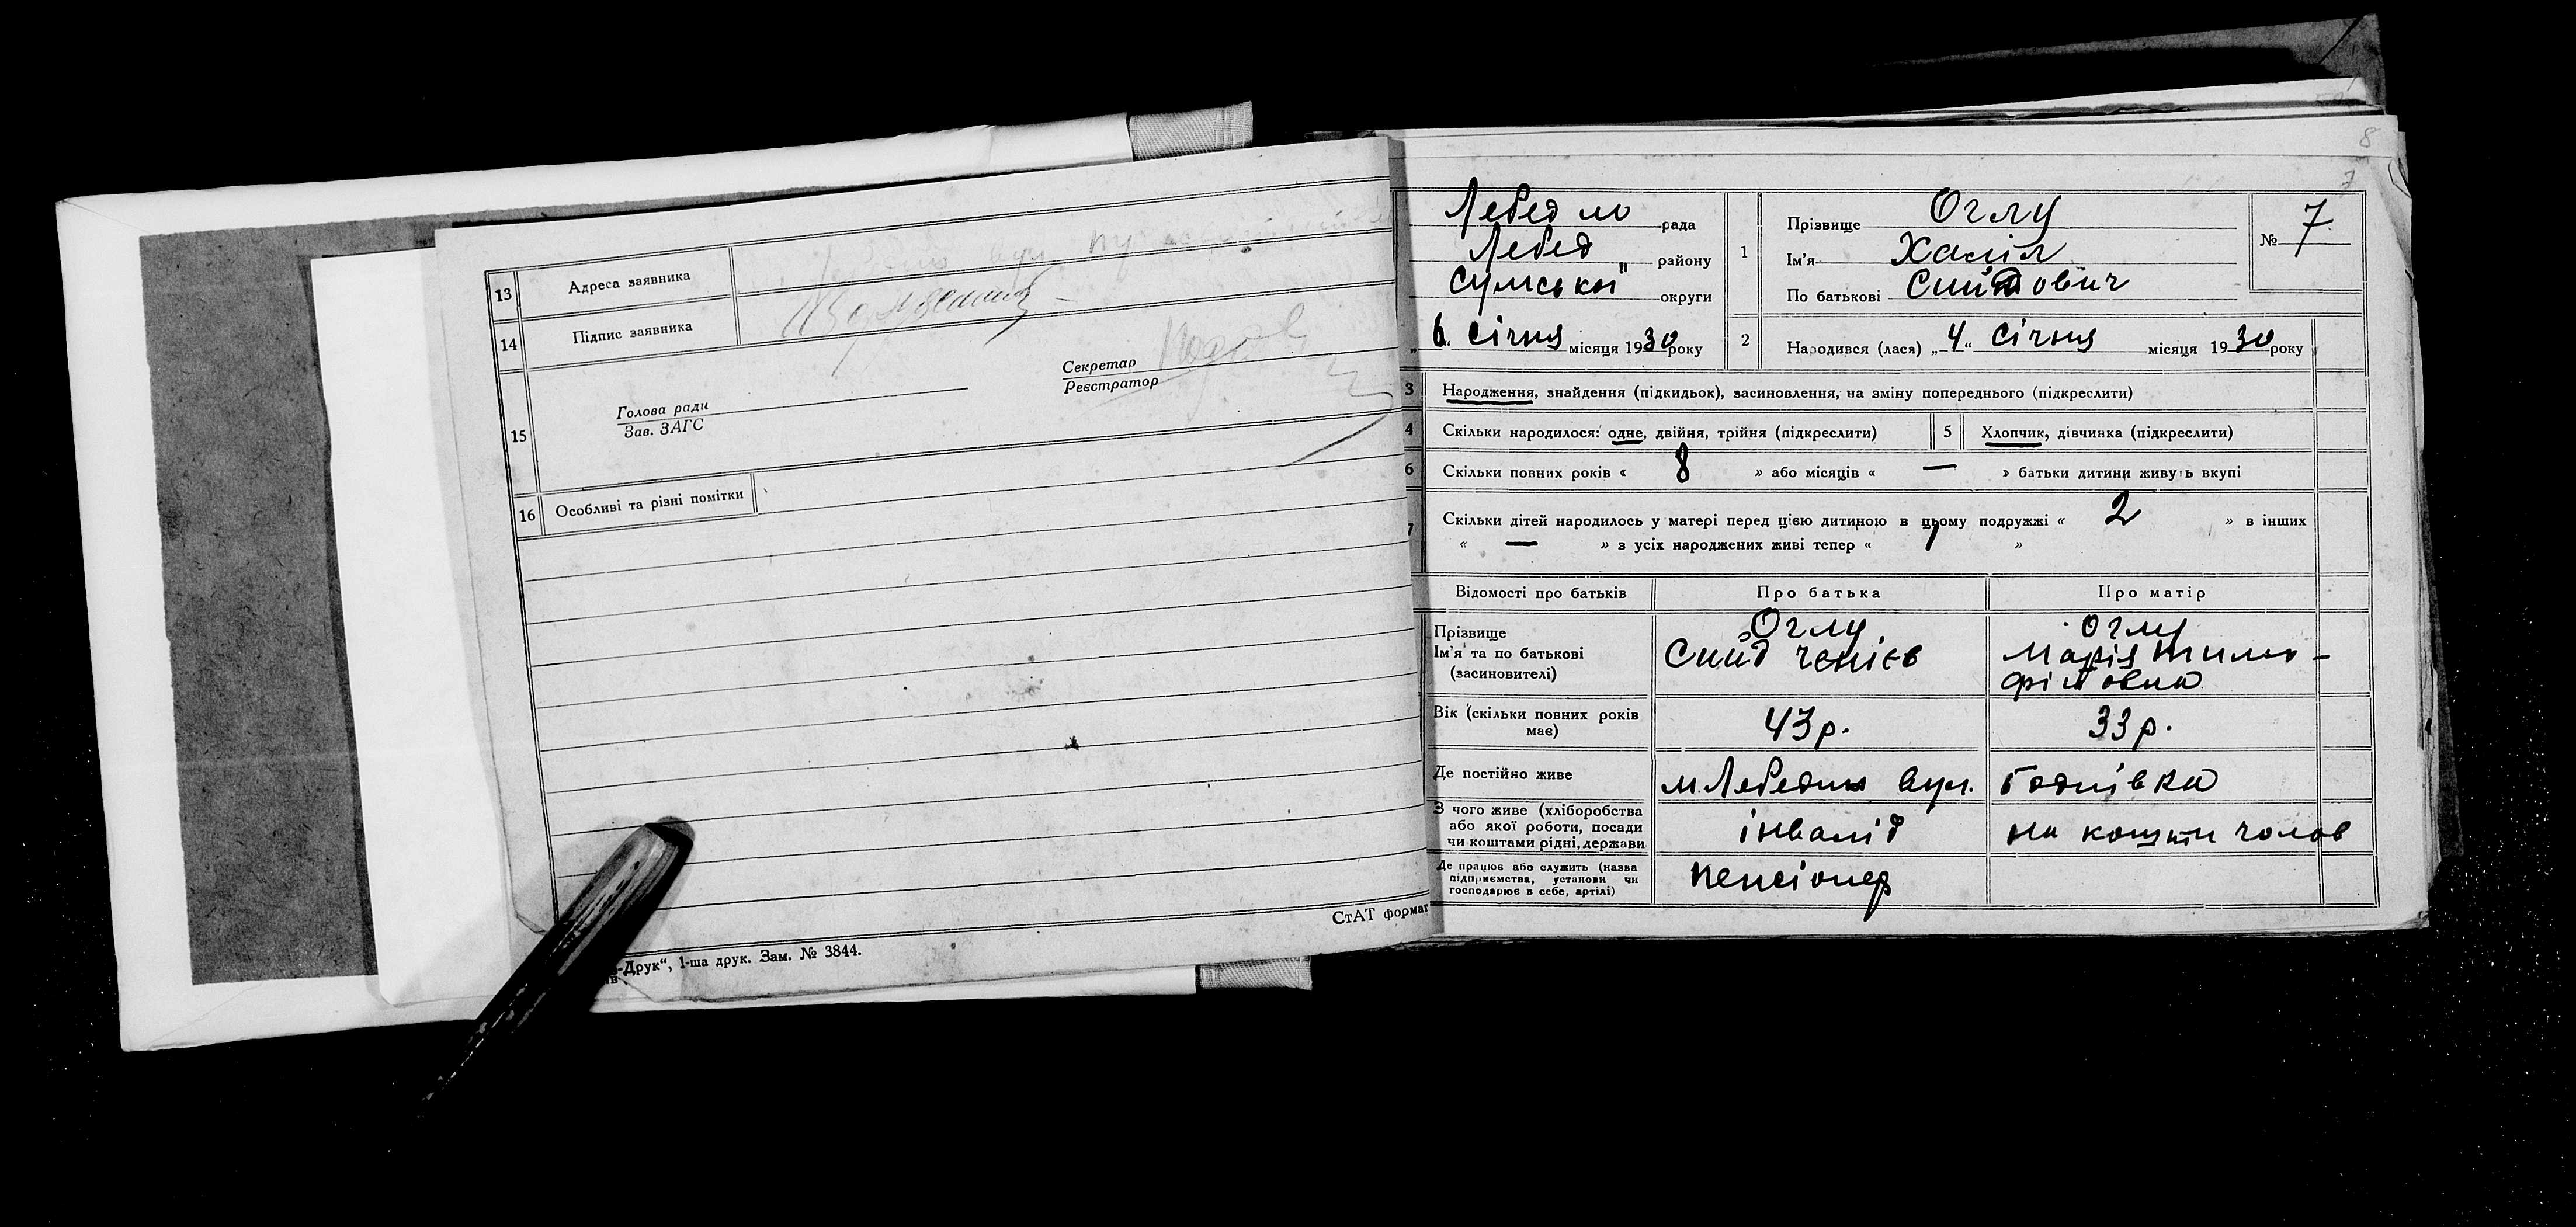 13 Адреса заявника
14 Підпис заявника
15 Голова ради
Зав. ЗАГС
Секретар
Реєстратор
16 Особливі та різні помітки
СтАТ формат
-Друк“, 1-ша друк. Зам. № 3844.
8
7
Лебед рада
Лебед району
Сумської округи
„6“ січня місяця 1930 року
1 Прізвище Оглу
Ім'я Халіл
По батькові Сиидович
№ 7
2 Народився (лася) „4“ січня місяця 1930 року
3 Народження, знайдення (підкидьок), засиновлення, на зміну попереднього (підкреслити)
4 Скільки народилося: одне, двійня, трійня (підкреслити) 5 Хлопчик, дівчинка (підкреслити)
6 Скільки повних років « 8 » або місяців « — » батьки дитини живуть вкупі
7 Скільки дітей народилось у матері перед цією дитиною в цьому подружжі « 2 » в інших
« — » з усіх народжених живі тепер « 1 »
Відомості про батьків Про батька Про матір
Прізвище Оглу Оглу
Ім'я та по батькові Сиид Марія
(засиновителі)
Вік (скільки повних років 43 р. 33 р.
має)
Де постійно живе м. Лебедин вул.
З чого живе (хліборобства
або якої роботи, посади інвалід на кошти чолов
чи коштами рідні, держави
Де працює або служить (назва пенсіонер
підприємства, установи чи
господарює в себе, артілі)